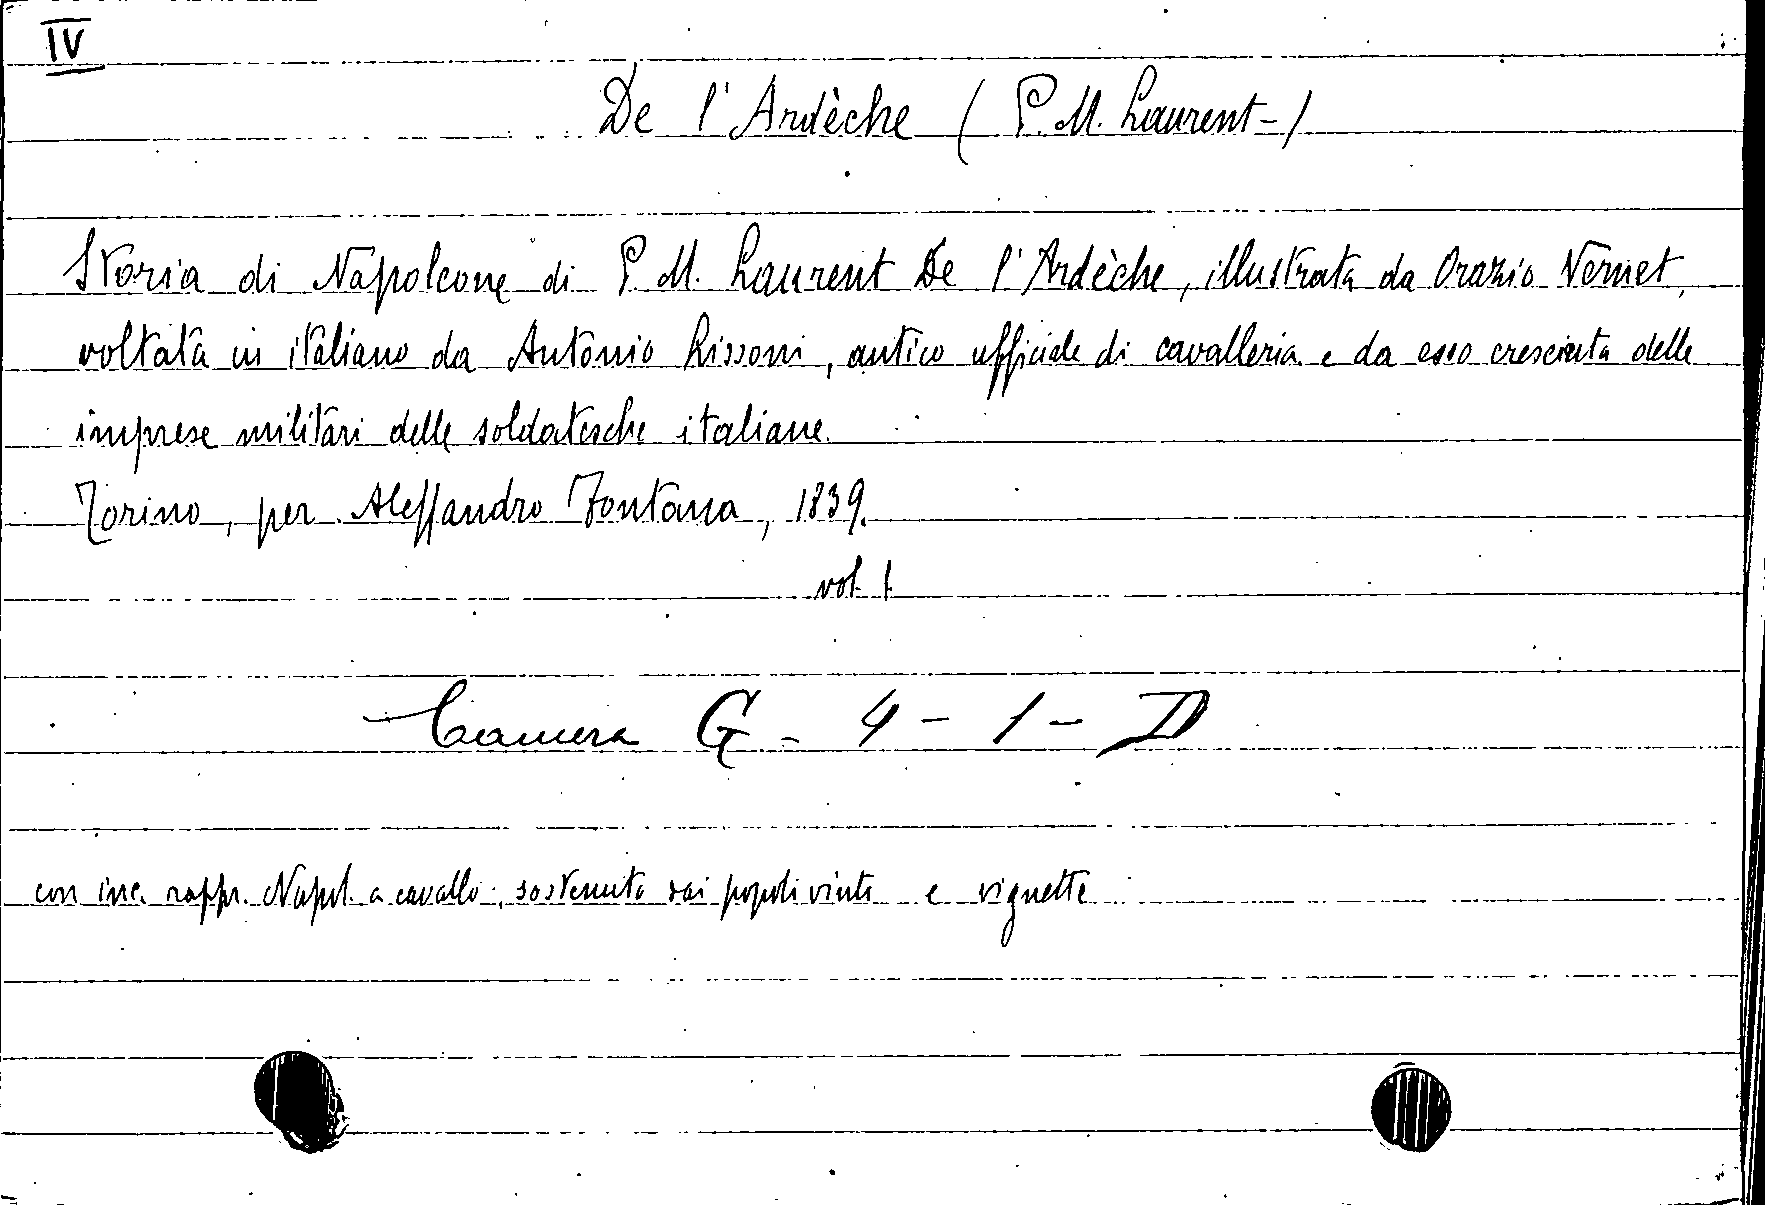 IV
De l'Ardèche (P. M. Laurent-)
Storia di Napoleone di P. M. Laurent De l'Ardèche, illustrata da Orazio Vernet,
voltata in italiano da Antonio Lissoni, antico ufficiale di cavalleria e da esso cresciuta delle
imprese militari delle soldatesche italiane.
Torino, per Alessandro Fontana, 1839.
vol. 1
Camera G - 4 - 1 - D
con inc. rappr. Napol. a cavallo, sostenuto dai popoli vinti e vignette